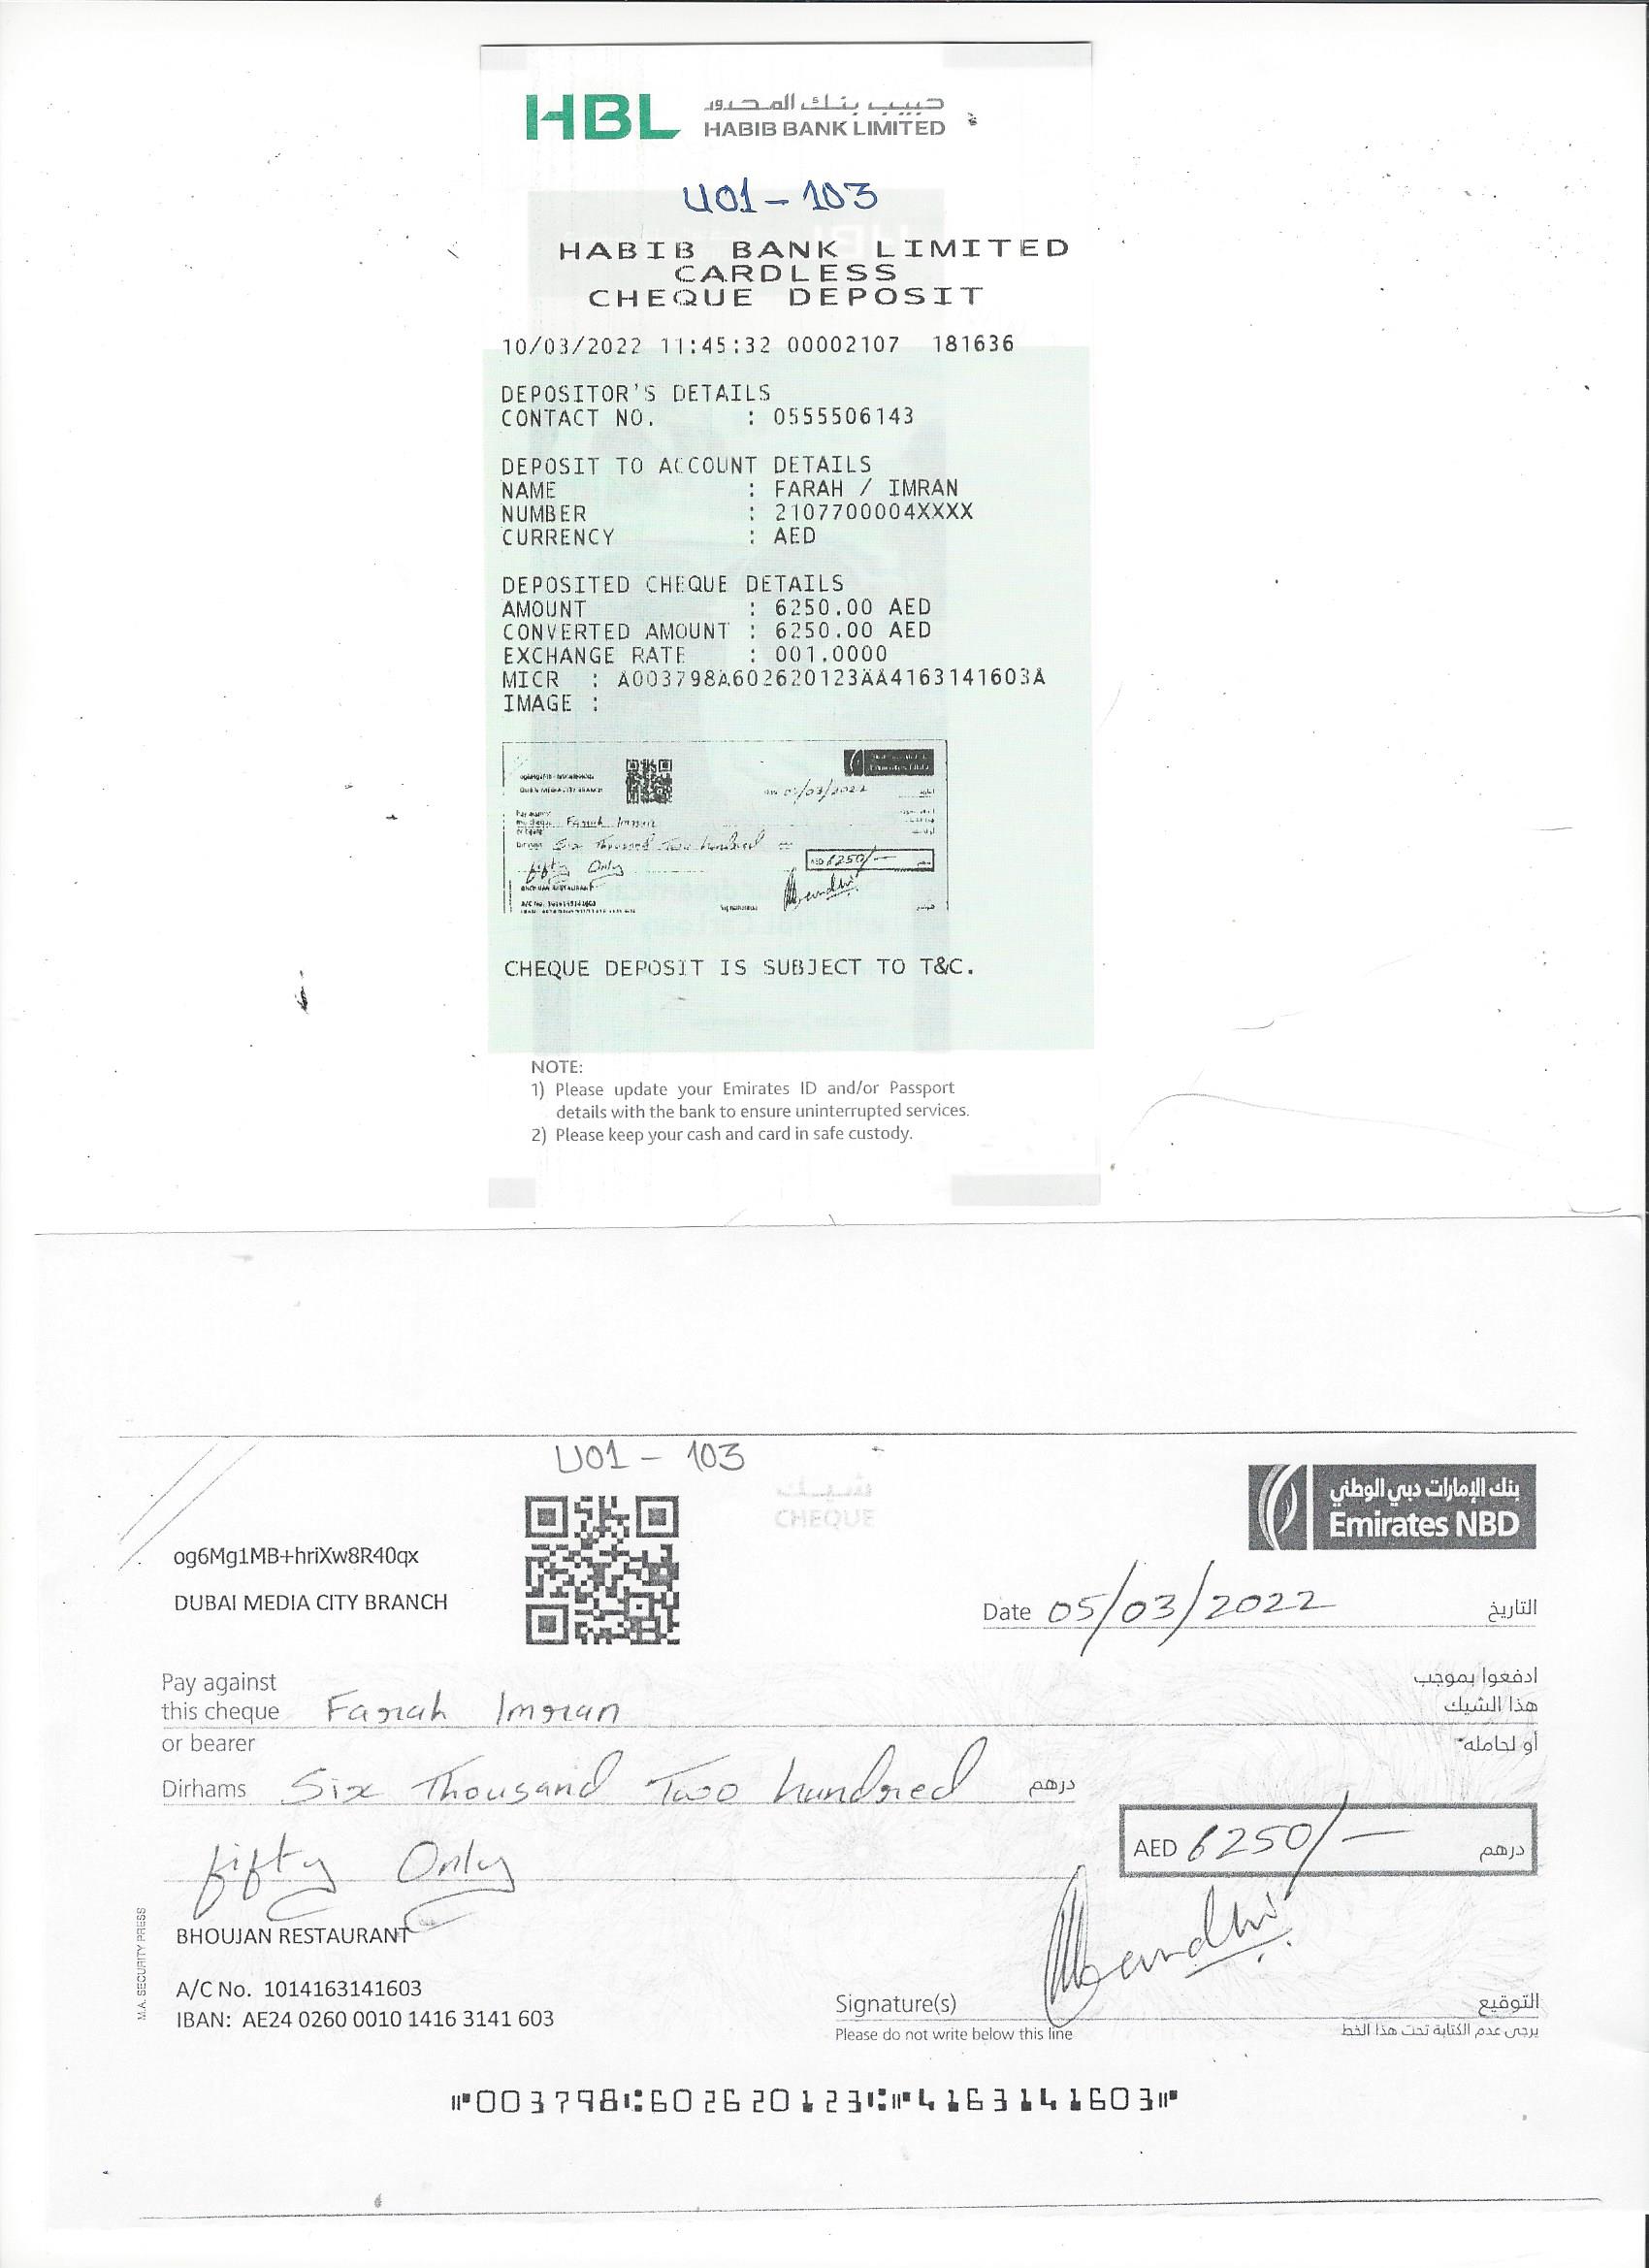 HBL حبيب بنك المحدود
HABIB BANK LIMITED
U01 - 103
HABIB BANK LIMITED
CARDLESS
CHEQUE DEPOSIT
10/03/2022 11:45:32 00002107 181636
DEPOSITOR'S DETAILS
CONTACT NO. : 0555506143
DEPOSIT TO ACCOUNT DETAILS
NAME : FARAH / IMRAN
NUMBER : 2107700004XXXX
CURRENCY : AED
DEPOSITED CHEQUE DETAILS
AMOUNT : 6250.00 AED
CONVERTED AMOUNT : 6250.00 AED
EXCHANGE RATE : 001.0000
MICR : A003798A602620123AA4163141603A
IMAGE :
DUBAI MEDIA CITY BRANCH
05/03/2022
Farah Imran
Six Thousand Two hundred
fifty Only
AED 6250/-
BHOUJAN RESTAURANT
A/C No. 1014163141603
CHEQUE DEPOSIT IS SUBJECT TO T&C.
NOTE:
1) Please update your Emirates ID and/or Passport
details with the bank to ensure uninterrupted services.
2) Please keep your cash and card in safe custody.
U01 - 103
شيك
CHEQUE
بنك الإمارات دبي الوطني
Emirates NBD
og6Mg1MB+hriXw8R40qx
DUBAI MEDIA CITY BRANCH
Date 05/03/2022 التاريخ
Pay against ادفعوا بموجب
this cheque Farah Imran هذا الشيك
or bearer أو لحامله
Dirhams Six Thousand Two hundred درهم
fifty Only
AED 6250/- درهم
BHOUJAN RESTAURANT
A/C No. 1014163141603
IBAN: AE24 0260 0010 1416 3141 603
M.A. SECURITY PRESS
Signature(s) التوقيع
Please do not write below this line يرجى عدم الكتابة تحت هذا الخط
⑈003798⑆602620123⑆⑈4163141603⑈